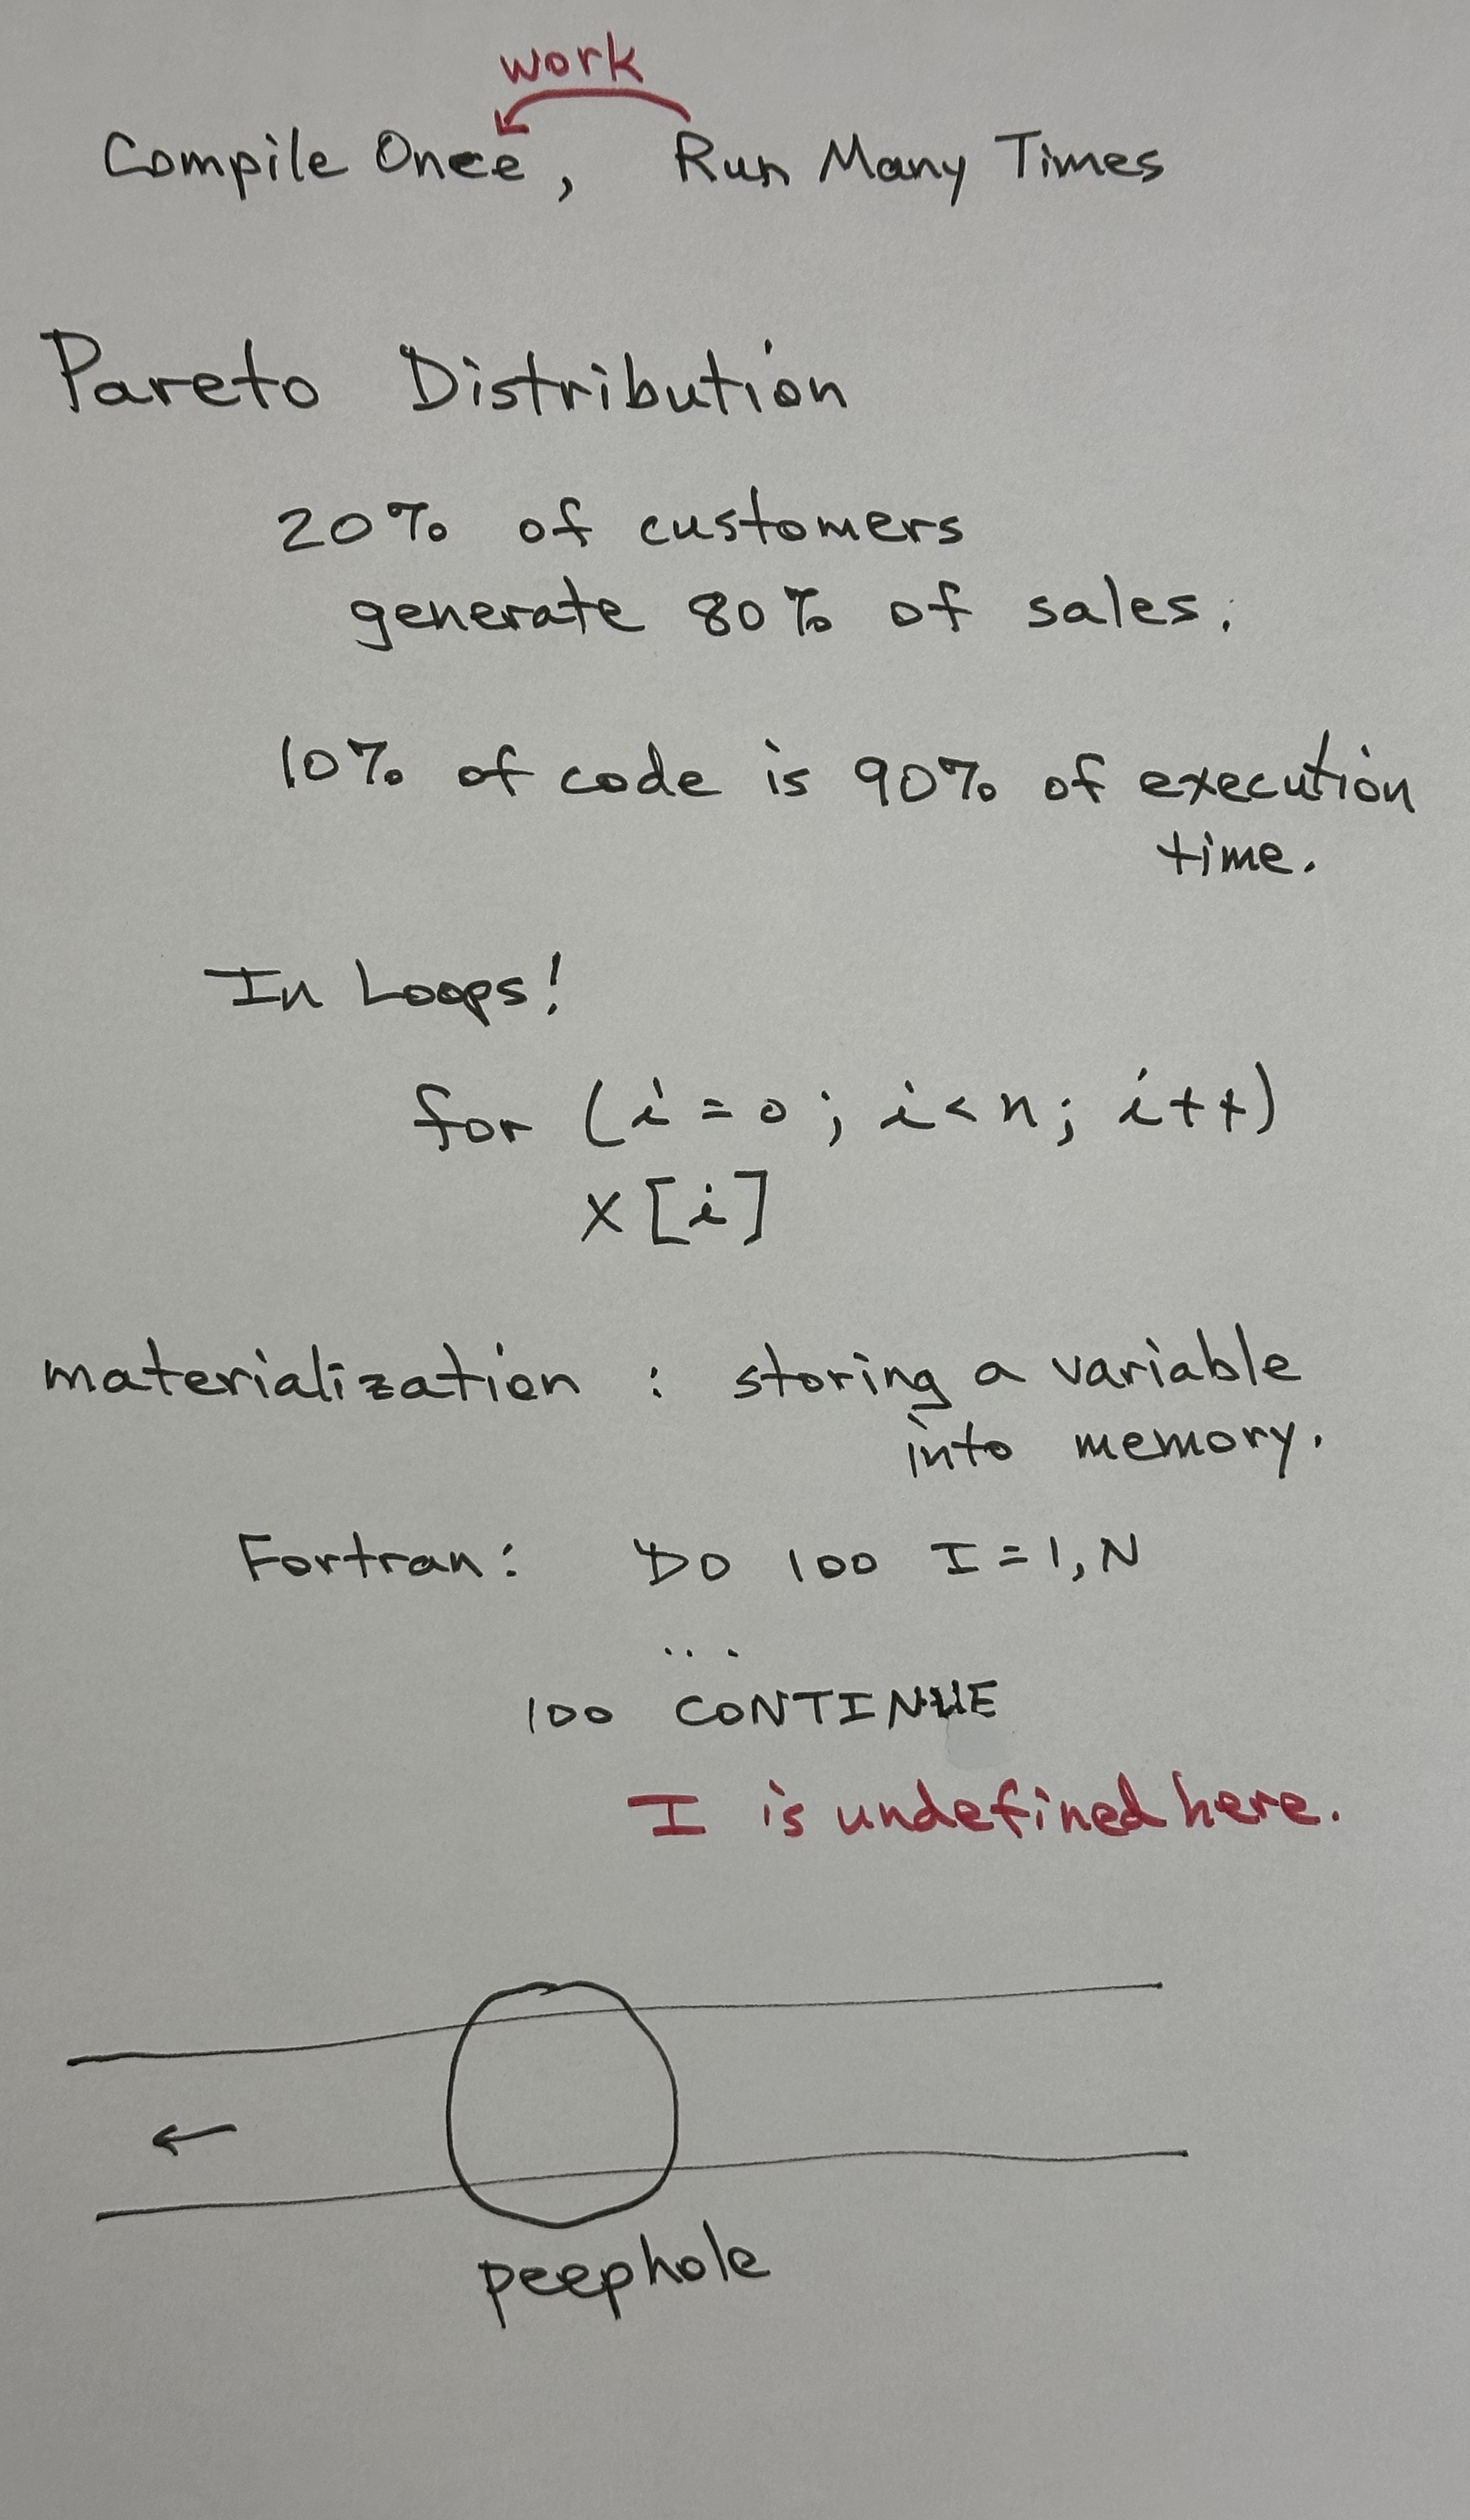 work
Compile Once, Run Many Times
Pareto Distribution
20% of customers
generate 80% of sales.
10% of code is 90% of execution
time.
In Loops!
for (i = 0; i < n; i++)
x[i]
materialization : storing a variable
into memory.
Fortran: DO 100 I = 1, N
...
100 CONTINUE
I is undefined here.
peephole